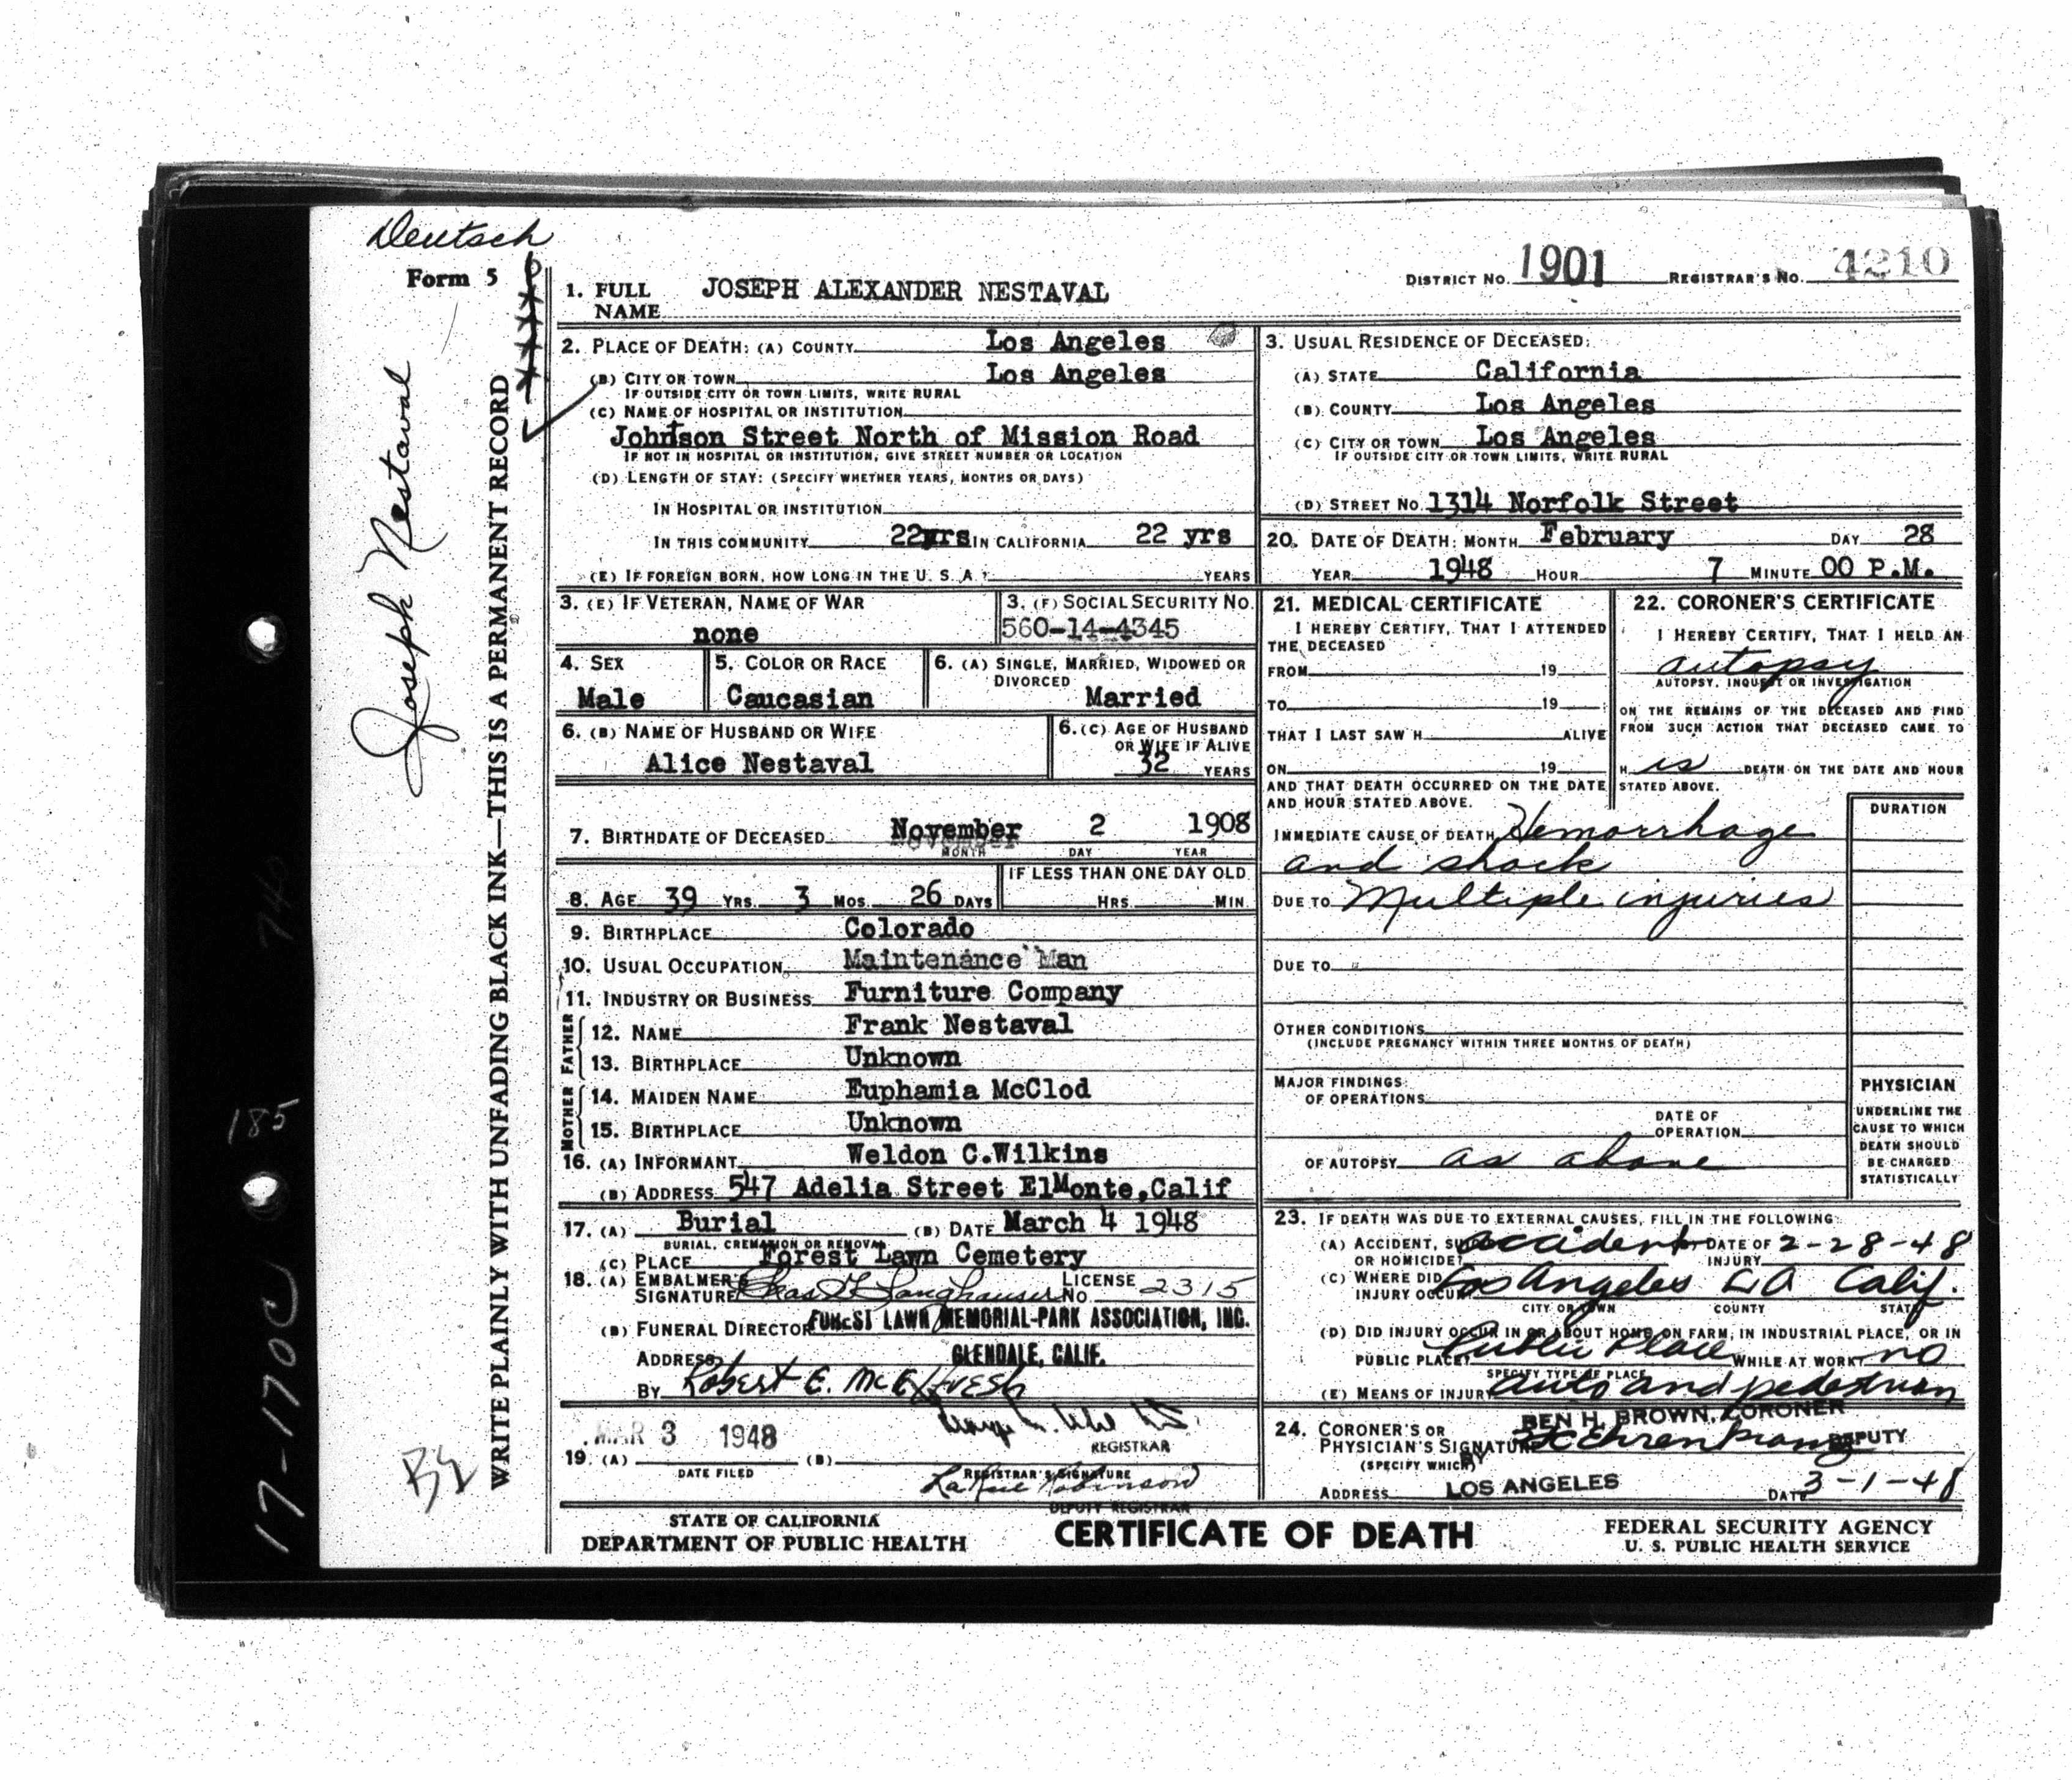 Deutsch
Form 5
Joseph Nestaval
WRITE PLAINLY WITH UNFADING BLACK INK—THIS IS A PERMANENT RECORD
185
17-170C
DISTRICT NO. 1901 REGISTRAR'S NO. 4210
1. FULL NAME JOSEPH ALEXANDER NESTAVAL
2. PLACE OF DEATH: (A) COUNTY Los Angeles
(B) CITY OR TOWN Los Angeles
IF OUTSIDE CITY OR TOWN LIMITS, WRITE RURAL
(C) NAME OF HOSPITAL OR INSTITUTION
Johnson Street North of Mission Road
IF NOT IN HOSPITAL OR INSTITUTION, GIVE STREET NUMBER OR LOCATION
(D) LENGTH OF STAY: (SPECIFY WHETHER YEARS, MONTHS OR DAYS)
IN HOSPITAL OR INSTITUTION
IN THIS COMMUNITY 22yrs IN CALIFORNIA 22 yrs
(E) IF FOREIGN BORN, HOW LONG IN THE U. S. A.? YEARS
3. USUAL RESIDENCE OF DECEASED:
(A) STATE California
(B) COUNTY Los Angeles
(C) CITY OR TOWN Los Angeles
IF OUTSIDE CITY OR TOWN LIMITS, WRITE RURAL
(D) STREET NO. 1314 Norfolk Street
20. DATE OF DEATH: MONTH February DAY 28
YEAR 1948 HOUR 7 MINUTE 00 P.M.
3. (E) IF VETERAN, NAME OF WAR
none
3. (F) SOCIAL SECURITY NO.
560-14-4345
4. SEX
Male
5. COLOR OR RACE
Caucasian
6. (A) SINGLE, MARRIED, WIDOWED OR DIVORCED
Married
6. (B) NAME OF HUSBAND OR WIFE
Alice Nestaval
6. (C) AGE OF HUSBAND OR WIFE IF ALIVE
32 YEARS
7. BIRTHDATE OF DECEASED November 2 1908
MONTH DAY YEAR
8. AGE 39 YRS. 3 MOS. 26 DAYS
IF LESS THAN ONE DAY OLD
HRS. MIN.
9. BIRTHPLACE Colorado
10. USUAL OCCUPATION Maintenance Man
11. INDUSTRY OR BUSINESS Furniture Company
FATHER
12. NAME Frank Nestaval
13. BIRTHPLACE Unknown
MOTHER
14. MAIDEN NAME Euphamia McClod
15. BIRTHPLACE Unknown
16. (A) INFORMANT Weldon C.Wilkins
(B) ADDRESS 547 Adelia Street ElMonte,Calif
17. (A) Burial (B) DATE March 4 1948
BURIAL, CREMATION OR REMOVAL
(C) PLACE Forest Lawn Cemetery
18. (A) EMBALMER'S SIGNATURE Chas F Langhauser LICENSE NO. 2315
(B) FUNERAL DIRECTOR FOREST LAWN MEMORIAL-PARK ASSOCIATION, INC.
ADDRESS GLENDALE, CALIF.
BY Robert E. McElfresh
MAR 3 1948
REGISTRAR
19. (A) (B)
DATE FILED REGISTRAR'S SIGNATURE
LaRue Robinson
DEPUTY REGISTRAR
21. MEDICAL CERTIFICATE
I HEREBY CERTIFY, THAT I ATTENDED
THE DECEASED
FROM 19
TO 19
THAT I LAST SAW H ALIVE
ON 19
AND THAT DEATH OCCURRED ON THE DATE
AND HOUR STATED ABOVE.
22. CORONER'S CERTIFICATE
I HEREBY CERTIFY, THAT I HELD AN
autopsy
AUTOPSY, INQUEST OR INVESTIGATION
ON THE REMAINS OF THE DECEASED AND FIND
FROM SUCH ACTION THAT DECEASED CAME TO
H is DEATH ON THE DATE AND HOUR
STATED ABOVE.
DURATION
IMMEDIATE CAUSE OF DEATH Hemorrhage
and shock
DUE TO Multiple injuries
DUE TO
OTHER CONDITIONS
(INCLUDE PREGNANCY WITHIN THREE MONTHS OF DEATH)
MAJOR FINDINGS:
OF OPERATIONS
DATE OF OPERATION
OF AUTOPSY as above
PHYSICIAN
UNDERLINE THE
CAUSE TO WHICH
DEATH SHOULD
BE CHARGED
STATISTICALLY
23. IF DEATH WAS DUE TO EXTERNAL CAUSES, FILL IN THE FOLLOWING:
(A) ACCIDENT, SUICIDE OR HOMICIDE? accident DATE OF INJURY 2-28-48
(C) WHERE DID INJURY OCCUR? Los Angeles LA Calif.
CITY OR TOWN COUNTY STATE
(D) DID INJURY OCCUR IN OR ABOUT HOME, ON FARM, IN INDUSTRIAL PLACE, OR IN
PUBLIC PLACE? Public Place WHILE AT WORK? no
SPECIFY TYPE OF PLACE
(E) MEANS OF INJURY auto and pedestrian
BEN H. BROWN, CORONER
24. CORONER'S OR PHYSICIAN'S SIGNATURE DEPUTY
(SPECIFY WHICH) BY
ADDRESS LOS ANGELES DATE 3-1-48
STATE OF CALIFORNIA
DEPARTMENT OF PUBLIC HEALTH
CERTIFICATE OF DEATH
FEDERAL SECURITY AGENCY
U. S. PUBLIC HEALTH SERVICE